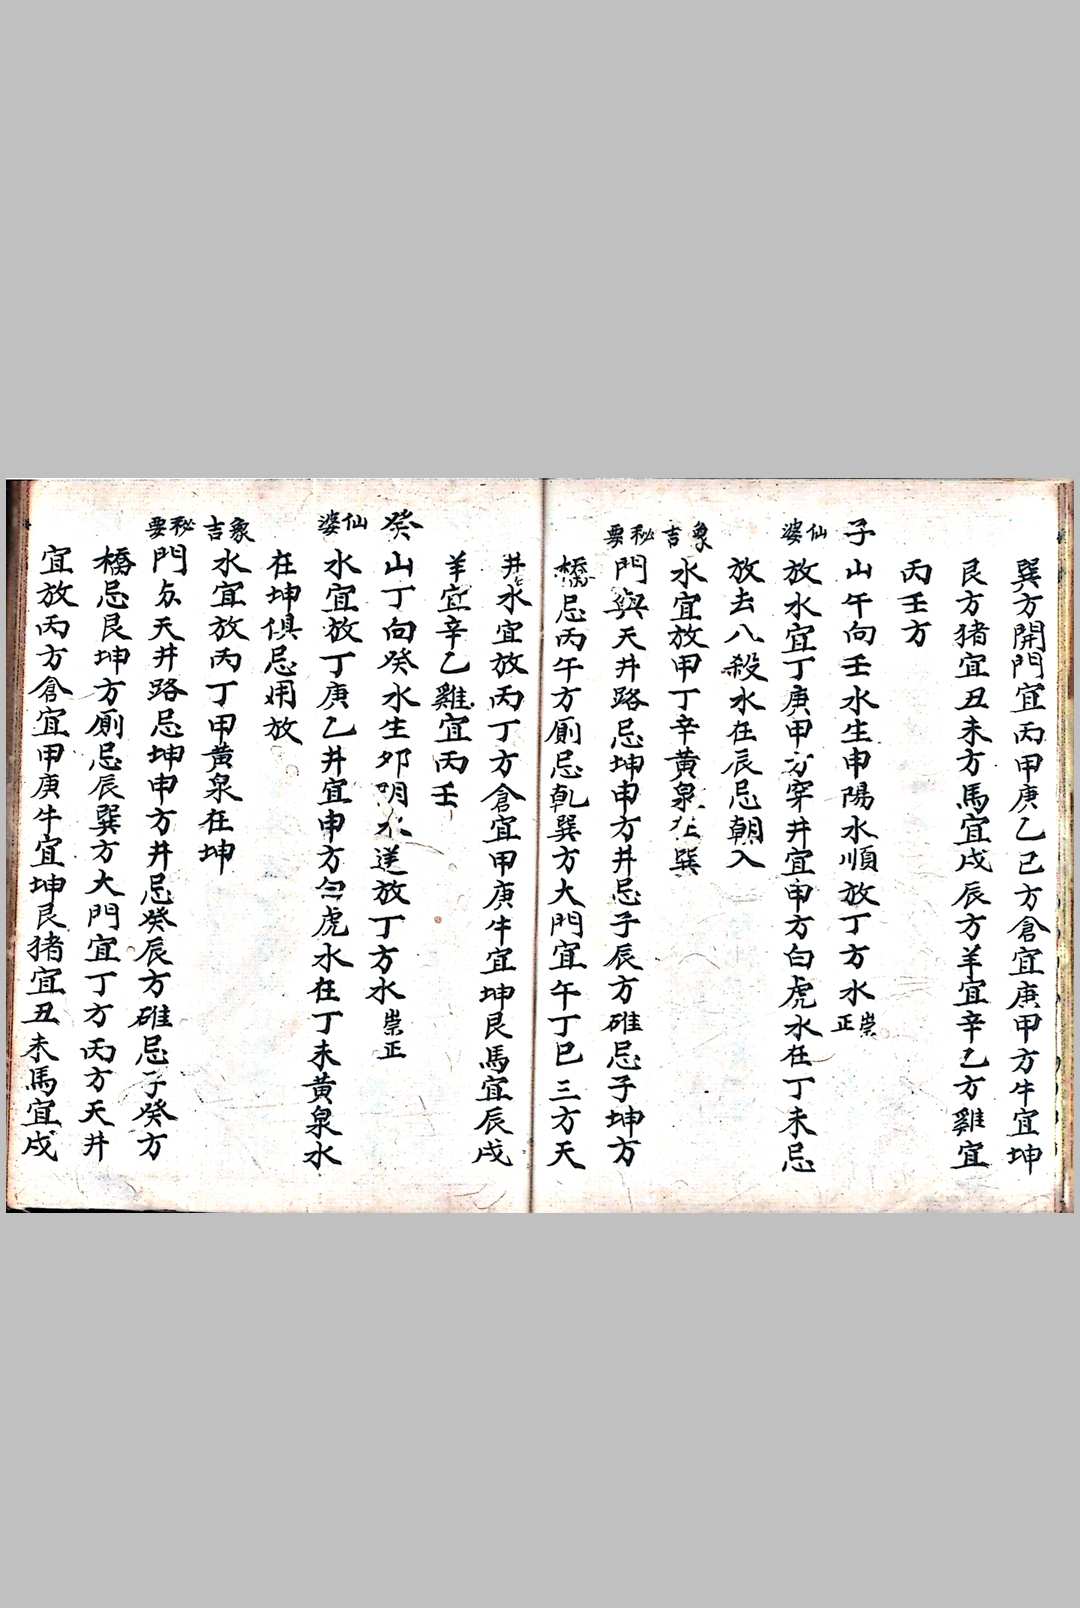 巽方開門宜丙甲庚乙已方倉宜庚甲方牛宜坤
艮方猪宜丑未方馬宜戍辰方羊宜辛乙方雞宜
丙壬方
子山午向壬水生申陽水順放丁方水崇正
仙婆放水宜丁庚甲方穿井宜申方白虎水在丁未忌
放去八殺水在辰忌朝入
象吉水宜放甲丁辛黃泉在巽
秘要門與天井路忌坤申方井忌子辰方碓忌子坤方
橋忌丙午方廁忌乹巽方大門宜午丁巳三方天
井水宜放丙丁方倉宜甲庚牛宜坤艮馬宜辰戌
羊宜辛乙雞宜丙壬
癸山丁向癸水生夘明水送放丁方水崇正
仙婆水宜放丁庚乙井宜申方白虎水在丁未黃泉水
在坤俱忌用放
象吉水宜放丙丁甲黃泉在坤
秘要門与天井路忌坤申方井忌癸辰方碓忌子癸方
橋忌艮坤方廁忌辰巽方大門宜丁方丙方天井
宜放丙方倉宜甲庚牛宜坤艮猪宜丑未馬宜戍